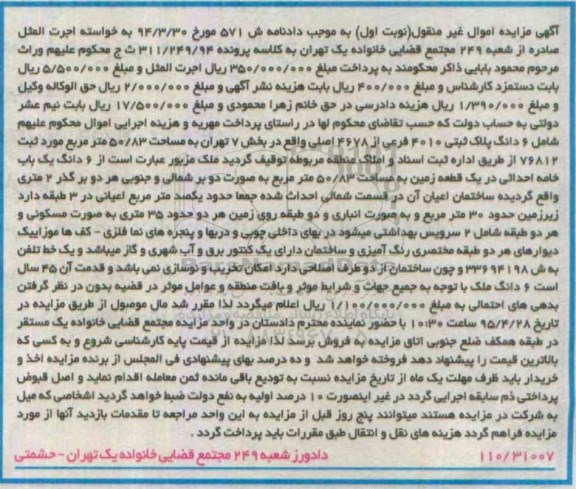 آگهی مزایده اموال غیر منقول(نوبت اول) به موجب دادنامه ش ۵۷۱ مورخ ۹۴/۳/۳۰ به خواسته اجرت المثل
صادره از شعبه ۲۴۹ مجتمع قضایی خانواده یک تهران به کلاسه پرونده ۳۱۱/۲۴۹/۹۴ ث ج محکوم علیهم وراث
مرحوم محمود بابایی ذاکر محکومند به پرداخت مبلغ ۳۵۰/۰۰۰/۰۰۰ ریال اجرت المثل و مبلغ ۵/۵۰۰/۰۰۰ ریال
بابت دستمزد کارشناس و مبلغ ۴۰۰/۰۰۰ ریال بابت هزینه نشر آگهی و مبلغ ۲/۰۰۰/۰۰۰ ریال حق الوکاله وکیل
و مبلغ ۱/۳۹۰/۰۰۰ ریال هزینه دادرسی در حق خانم زهرا محمودی و مبلغ ۱۷/۵۰۰/۰۰۰ ریال بابت نیم عشر
دولتی به حساب دولت که حسب تقاضای محکوم لها در راستای پرداخت مهریه و هزینه اجرایی اموال محکوم علیهم
شامل ۶ دانگ پلاک ثبتی ۴۰۱۰ فرعی از ۴۶۷۸ اصلی واقع در بخش ۷ تهران به مساحت ۵۰/۸۳ متر مربع مورد ثبت
۷۶۸۱۲ از طریق اداره ثبت اسناد و املاک منطقه مربوطه توقیف گردید ملک مزبور عبارت است از ۶ دانگ یک باب
خامه احداثی در یک قطعه زمین به مساحت ۵۰/۸۳ متر مربع به صورت دو بر شمالی و جنوبی هر دو بر گذر ۲ متری
واقع گردیده ساختمان اعیان آن در قسمت شمالی احداث شده جمعا حدود یکصد متر مربع اعیانی در ۳ طبقه دارد
زیرزمین حدود ۳۰ متر مربع و به صورت انباری و دو طبقه روی زمین هر دو حدود ۳۵ متری به صورت مسکونی و
هر دو طبقه شامل ۲ سرویس بهداشتی میشود در بهای داخلی چوبی و دربها و پنجره های نما فلزی - کف ها موزاییک
دیوارهای هر دو طبقه مختصری رنگ آمیزی و ساختمان دارای یک کنتور برق و آب شهری و گاز میباشد و یک خط تلفن
به ش ۳۳۶۹۴۱۹۸ و چون ساختمان از دو طرف اصلاحی دارد امکان تخریب و نوسازی نمی باشد و قدمت آن ۴۵ سال
است ۶ دانگ ملک با توجه به جمیع جهات و شرایط موثر و بافت منطقه و عوامل موثر در قضیه بدون در نظر گرفتن
بدهی های احتمالی به مبلغ ۱/۱۰۰/۰۰۰/۰۰۰ ریال اعلام میگردد لذا مقرر شد مال موصول از طریق مزایده در
تاریخ ۹۵/۴/۲۸ ساعت ۱۰:۳۰ با حضور نماینده محترم دادستان در واحد مزایده مجتمع قضایی خانواده یک مستقر
در طبقه همکف ضلع جنوبی اتاق مزایده به فروش برسد لذا مزایده از قیمت پایه کارشناسی شروع و به کسی که
بالاترین قیمت را پیشنهاد دهد فروخته خواهد شد و ده درصد بهای پیشنهادی فی المجلس از برنده مزایده اخذ و
خریدار باید ظرف مهلت یک ماه از تاریخ مزایده نسبت به تودیع باقی مانده ثمن معامله اقدام نماید و اصل قبوض
پرداختی ذم سابقه اجرایی گردد در غیر اینصورت ۱۰ درصد اولیه به نفع دولت ضبط خواهد گردید اشخاصی که میل
به شرکت در مزایده هستند میتوانند پنج روز قبل از مزایده به این واحد مراجعه تا مقدمات بازدید آنها از مورد
مزایده فراهم گردد هزینه های نقل و انتقال طبق مقررات باید پرداخت گردد .
۱۱۰/۳۱۰۰۷ دادورز شعبه ۲۴۹ مجتمع قضایی خانواده یک تهران - حشمتی